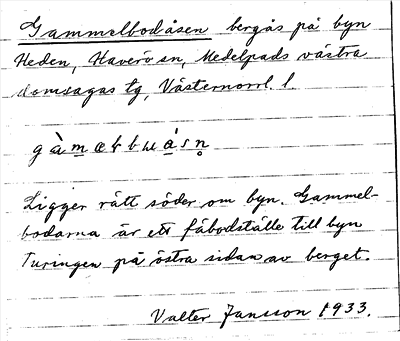 Gammelbodåsen bergås på byn
Heden, Haverö sn, Medelpads västra
domsagas tg, Västernorrl. l.
gàmæłbωásn̥
Ligger rätt söder om byn. Gammel-
bodarna är ett fäbodställe till byn
Turingen på östra sidan av berget.
Valter Jansson 1933.